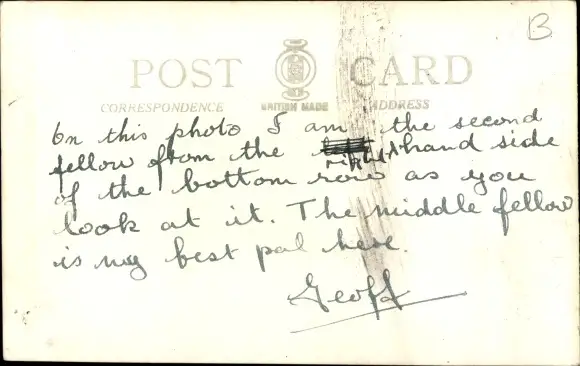 B
POST CARD
CORRESPONDENCE BRITISH MADE ADDRESS
On this photo I am the second
fellow from the right hand side
of the bottom row as you
look at it. The middle fellow
is my best pal here.
Geoff